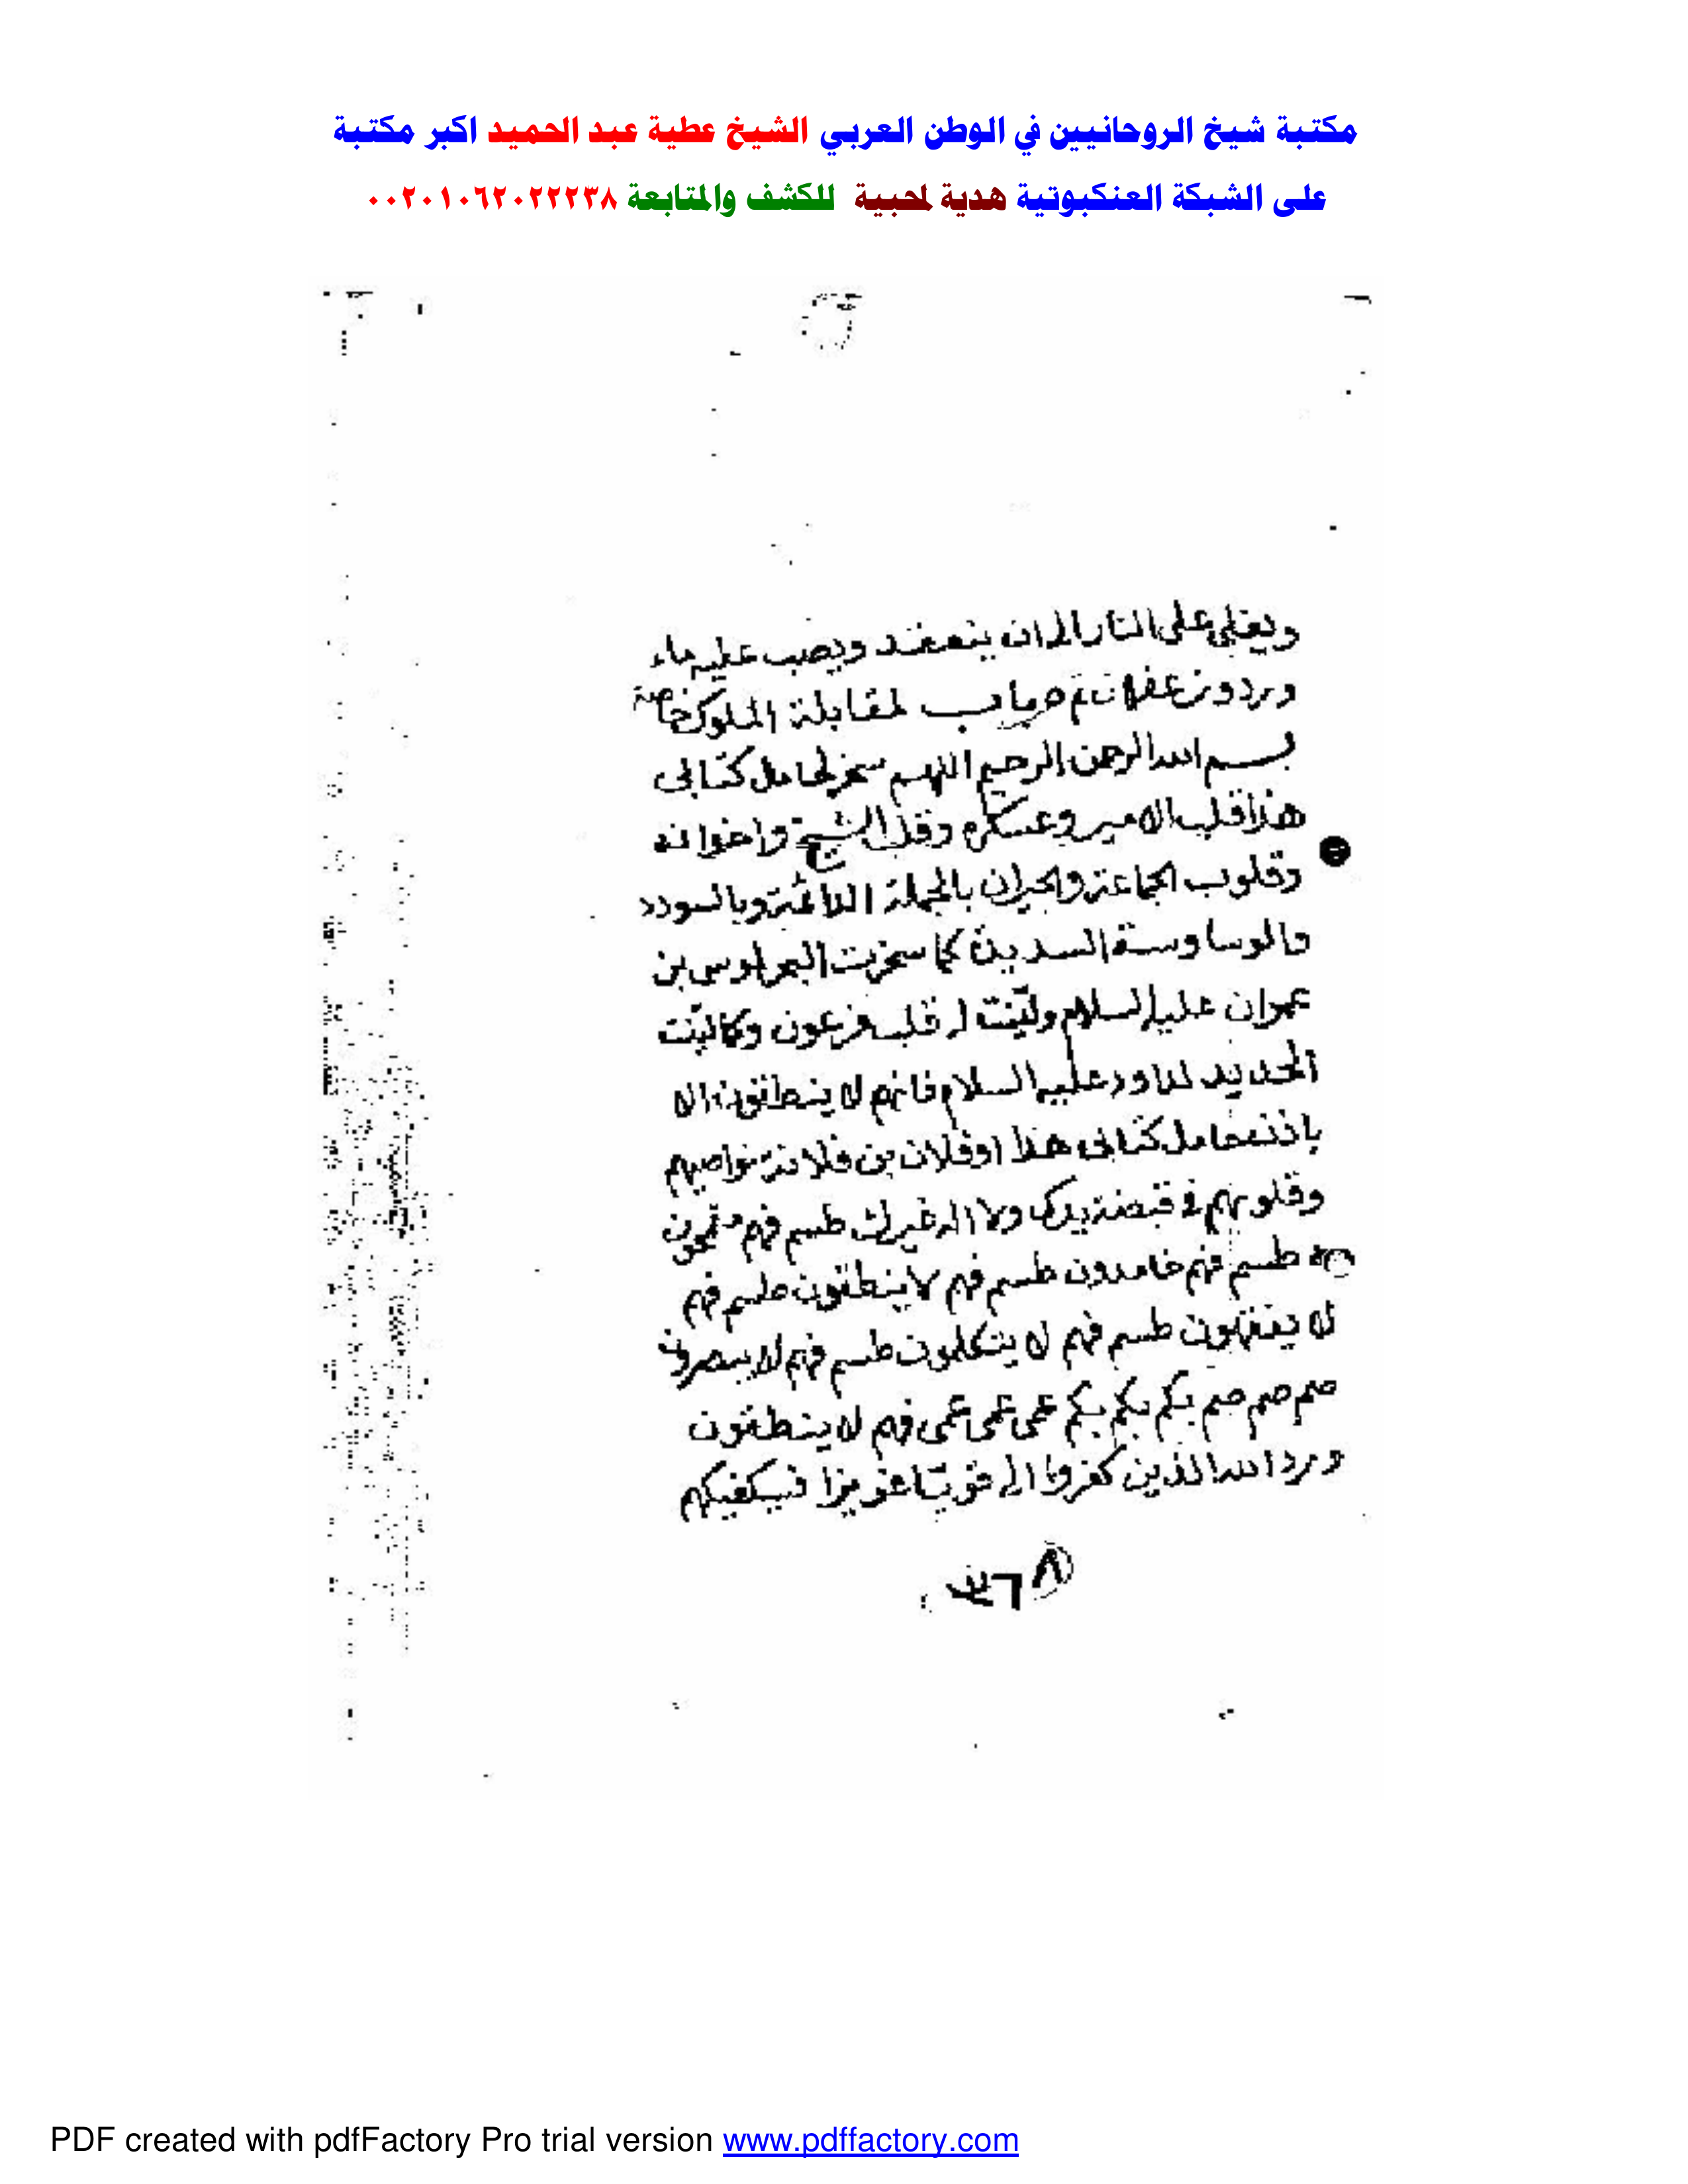 مكتبة شيخ الروحانيين في الوطن العربي الشيخ عطية عبد الحميد اكبر مكتبة
على الشبكة العنكبوتية هدية لمحبية للكشف والمتابعة ٠٠٢٠١٠٦٢٠٢٢٢٣٨
ويغلى على النار الى ان ينعقد ويصب عليه ماء
ورد وزعفران تم باب لمقابلة الملوك خاصة
بسم الله الرحمن الرحيم اللهم سخر لحامل كتابى
هذا قلب الامير وعسكره وقلب الشيخ واخوانه
وقلوب الجماعة والجيران بالجملة
كما سخرت البحر لموسى بن
عمران عليه السلام ولينت له قلب فرعون وكما لينت
الحديد لداود عليه السلام فانهم لا ينطقون الا
باذنك حامل كتابى هذا او فلان بن فلانة نواصيهم
وقلوبهم فى قبضة يدك ولا اله غيرك طسم فهم
طسم فهم خامدون طسم فهم لا ينطقون طسم فهم
لا يفقهون طسم فهم لا يتكلمون طسم فهم لا يبصرون
صم صم صم بكم بكم بكم عمى عمى عمى فهم لا ينطقون
ورد الله الذين كفروا الى قويا عزيزا فسيكفيكهم
PDF created with pdfFactory Pro trial version www.pdffactory.com